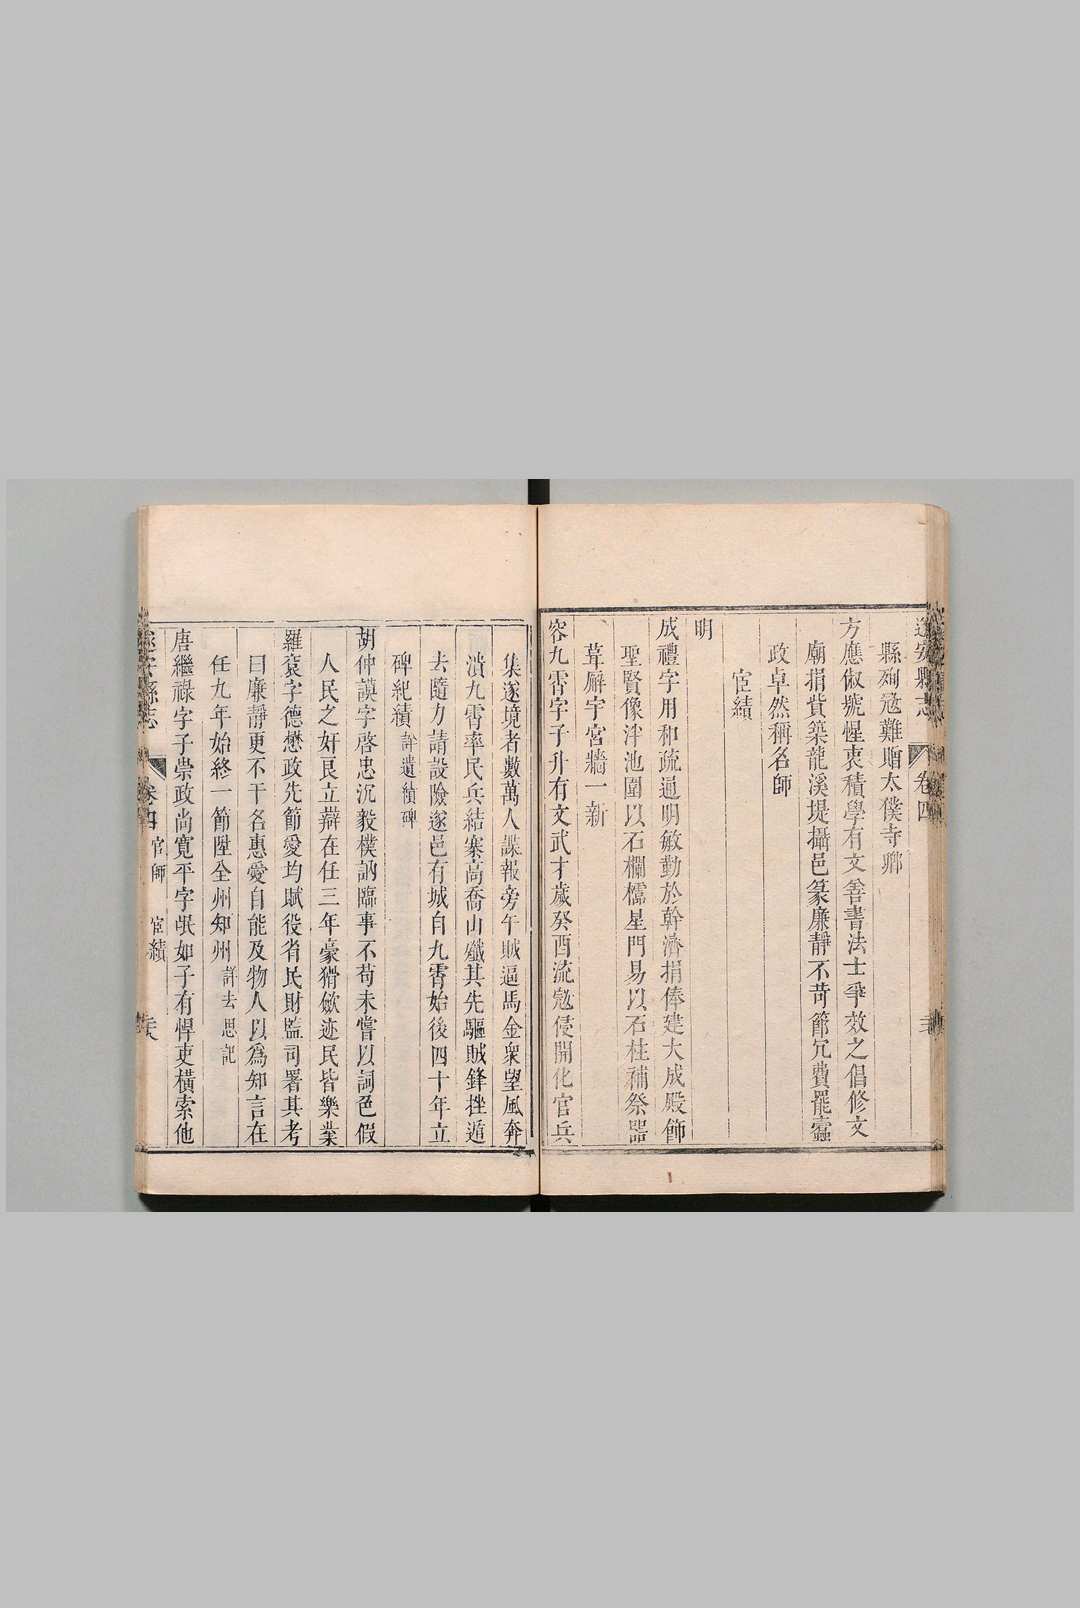 遂安縣志
卷四
縣殉寇難贈太僕寺卿
方應俶號惺衷積學有文善書法士爭效之倡修文
廟捐貲築龍溪堤攝邑篆廉靜不苛節冗費罷蠹
政卓然稱名師
宦績
明
成禮字用和疏通明敏勤於幹濟捐俸建大成殿飾
聖賢像泮池圍以石欄櫺星門易以石柱補祭器
葺廨宇宮牆一新
容九霄字子升有文武才歲癸酉流寇侵開化官兵
集遂境者數萬人諜報旁午賊逼馬金衆望風奔
潰九霄率民兵結寨高喬山殲其先驅賊鋒挫遁
去隨力請設險遂邑有城自九霄始後四十年立
碑紀績詳遺績碑
胡仲謨字啓忠沉毅樸訥臨事不苟未嘗以詞色假
人民之奸良立辯在任三年豪猾斂迹民皆樂業
羅裒字德懋政先節愛均賦役省民財監司署其考
曰廉靜更不干名惠愛自能及物人以爲知言在
任九年始終一節陞全州知州詳去思記
唐繼祿字子崇政尚寬平字氓如子有悍吏橫索他
遂安縣志
卷四 官師 宦績